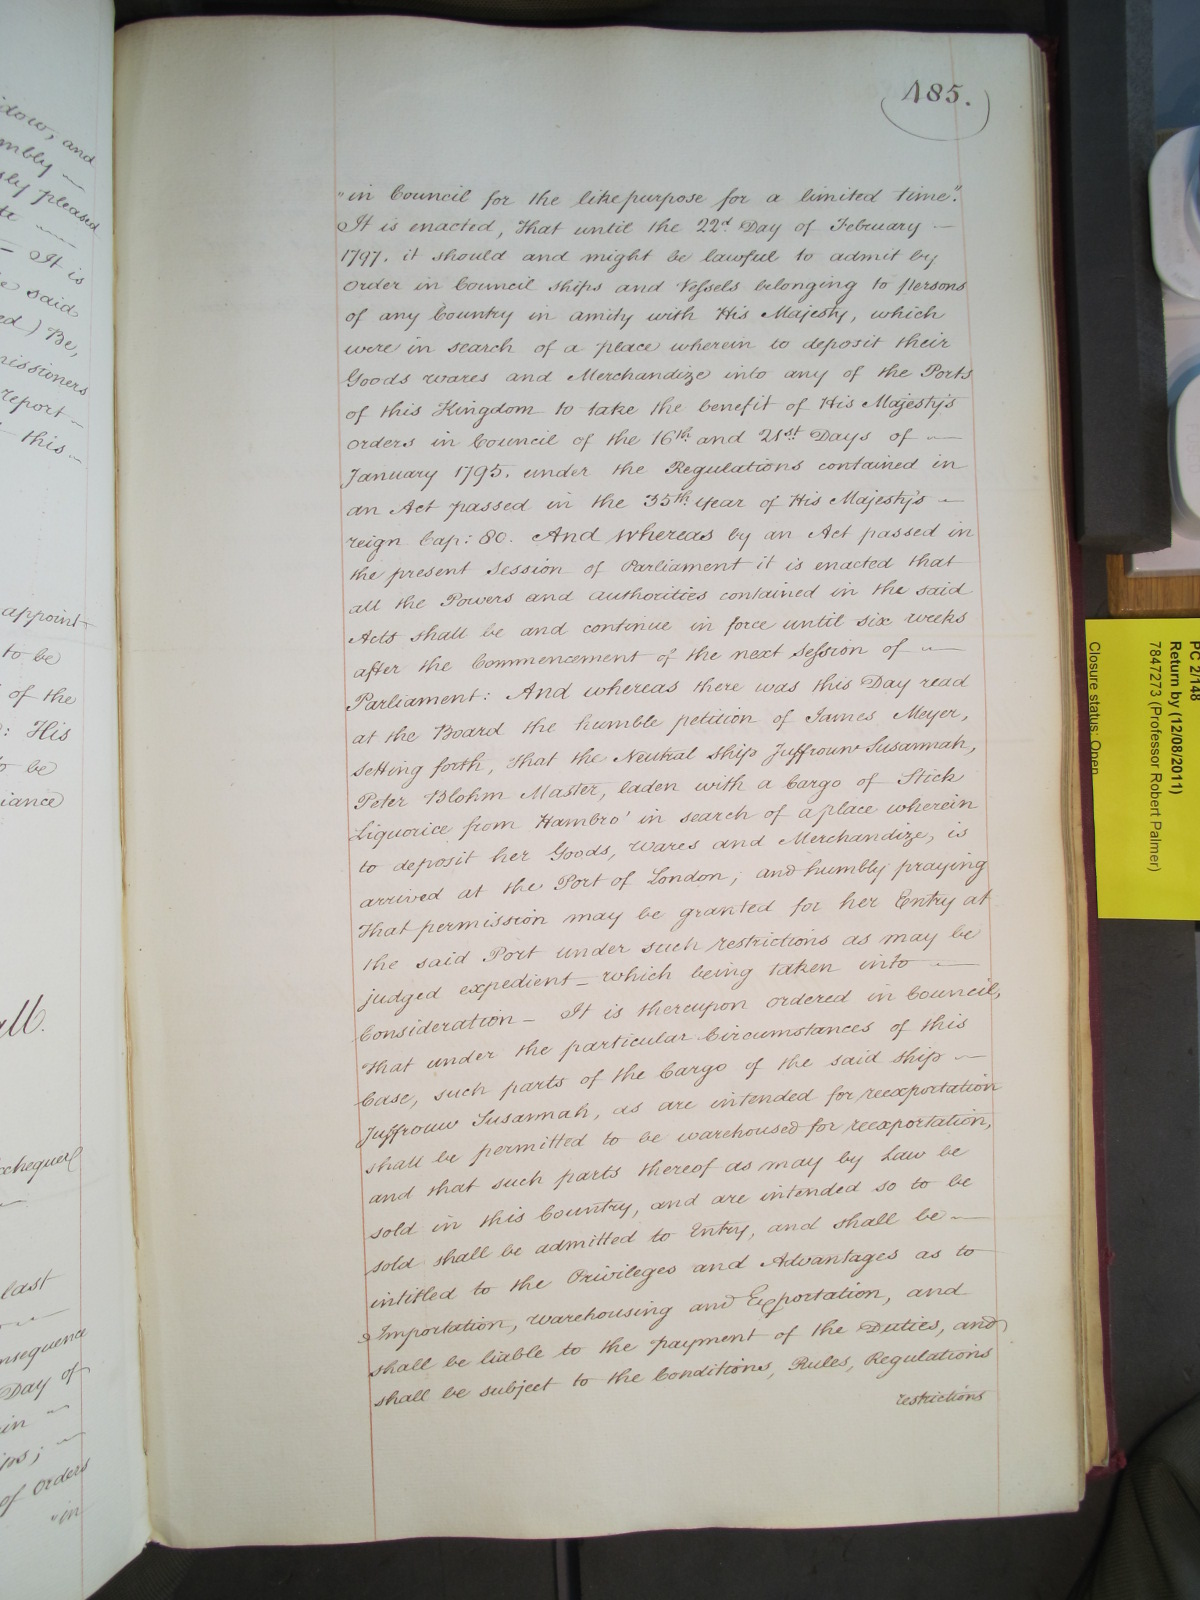 idow, and
mbly —
sly pleased
te —
— It is
e said
ed) Be,
missioners
report —
this —
appoint
to be
of the
: His
to be
iance
all.
xchequer
last
nsequence
Day of
in —
ips; —
of Orders
"in
185.
"in Council for the like purpose for a limited time."
It is enacted, That until the 22d. Day of February —
1797. it should and might be lawful to admit by
Order in Council ships and Vessels belonging to persons
of any Country in amity with His Majesty, which
were in search of a place wherein to deposit their
Goods wares and Merchandize into any of the Ports
of this Kingdom to take the benefit of His Majesty's
orders in Council of the 16th. and 21st. Days of —
January 1795. under the Regulations contained in
an Act passed in the 35th. year of His Majesty's —
reign Cap: 80. And Whereas by an Act passed in
the present Session of Parliament it is enacted that
all the Powers and authorities contained in the said
Acts shall be and continue in force until six weeks
after the Commencement of the next Session of —
Parliament: And whereas there was this Day read
at the Board the humble petition of James Meyer,
setting forth, That the Neutral ship Juffrouw Susannah,
Peter Blohm Master, laden with a Cargo of Stick
Liquorice from Hambro' in search of a place wherein
to deposit her Goods, wares and Merchandize, is
arrived at the Port of London; and humbly praying
That permission may be granted for her Entry at
the said Port under such restrictions as may be
judged expedient — which being taken into —
Consideration — It is thereupon ordered in Council,
That under the particular Circumstances of this
Case, such parts of the Cargo of the said ship —
Juffrouw Susannah, as are intended for reexportation
shall be permitted to be warehoused for reexportation,
and that such parts thereof as may by Law be
sold in this Country, and are intended so to be
sold shall be admitted to Entry, and shall be —
intitled to the Privileges and Advantages as to
Importation, warehousing and Exportation, and
shall be liable to the payment of the Duties, and
shall be subject to the Conditions, Rules, Regulations
restrictions
PC 2/148
Return by (12/08/2011)
7847273 (Professor Robert Palmer)
Closure status: Open